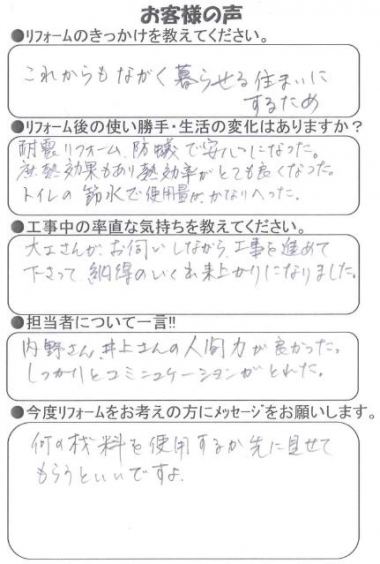 お客様の声
●リフォームのきっかけを教えてください。
これからもながく暮らせる住まいに
するため
●リフォーム後の使い勝手・生活の変化はありますか？
耐震リフォーム、防蟻で安心になった。
熱効果もあり熱効率がとても良くなった。
トイレの節水で使用量が、かなりへった。
●工事中の率直な気持ちを教えてください。
大工さんが、お伺いしながら、工事を進めて
下さって、納得のいく出来上がりになりました。
●担当者について一言!!
内野さん、井上さんの人間力が良かった。
しっかりとコミニュケーションがとれた。
●今度リフォームをお考えの方にメッセージをお願いします。
何の材料を使用するか先に見せて
もらうといいですよ.